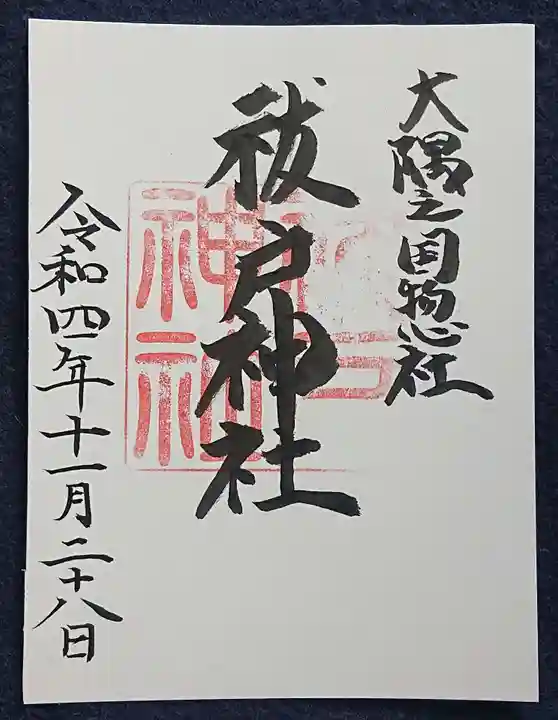 大隅之国惣社
祓戸神社
令和四年十一月二十八日